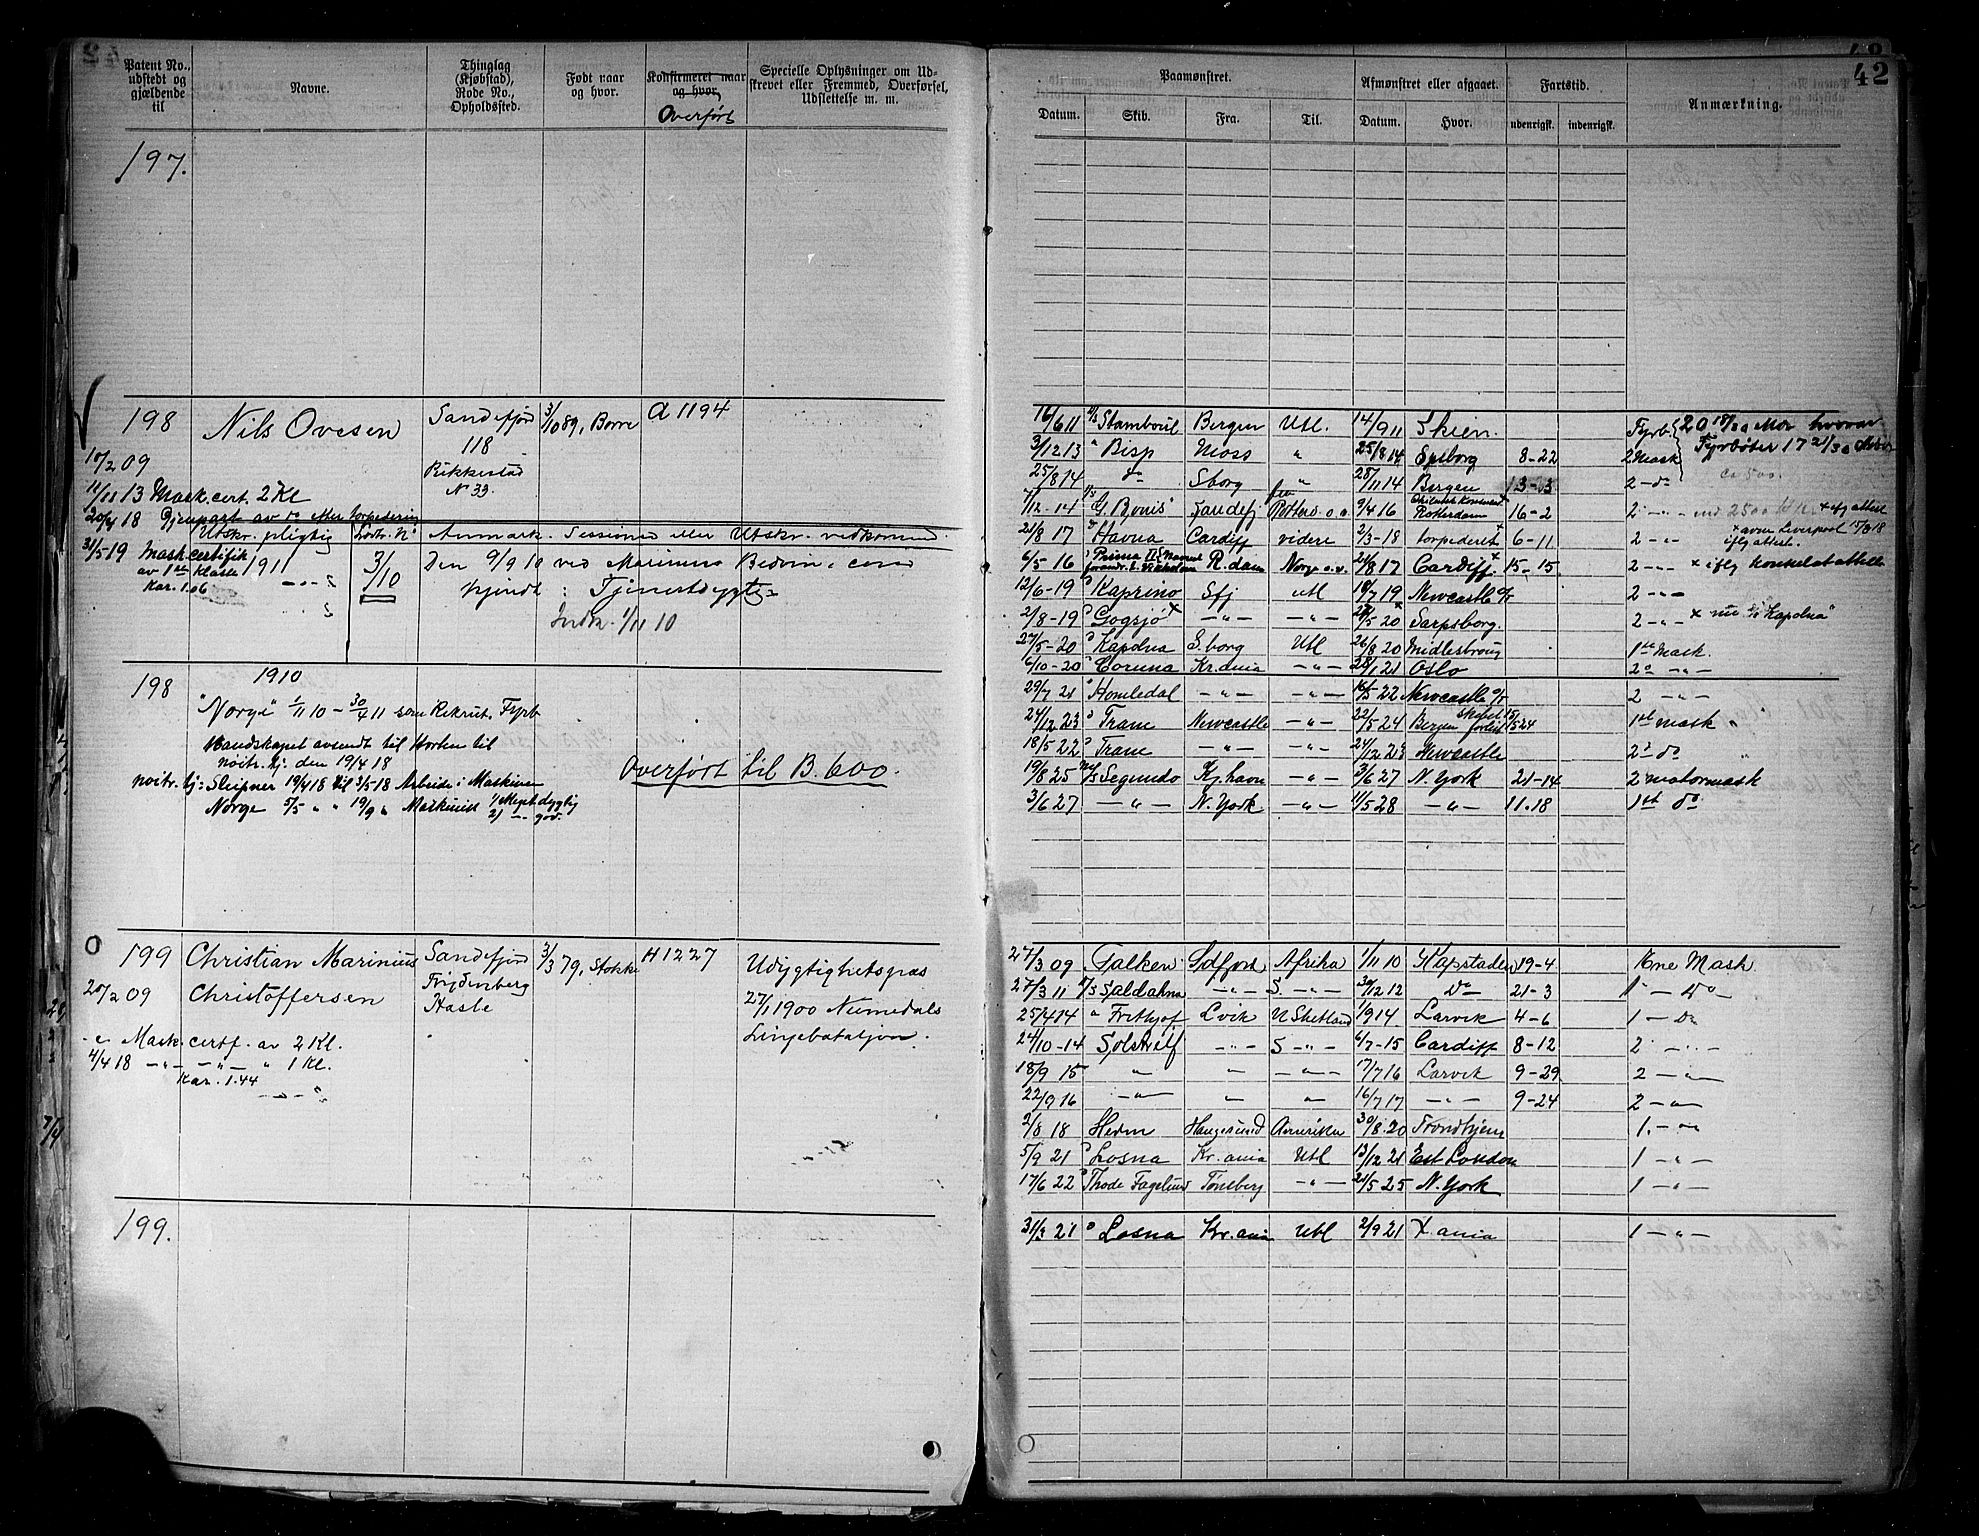 Patent No.,
udstedt og
gjældende
til
Navne.
Thinglag
(Kjøbstad),
Rode No.,
Opholdssted.
Født naar
og hvor.
Konfirmeret naar
og hvor,
Overført
Specielle Oplysninger om Ud-
skrevet eller Fremmed, Overførsel,
Udslettelse m. m.
197.
198 Nils Ovesen Sandefjord 3/10 89, Borre A 1194
118
10/2 09 Bikkestad
N 33.
11/11 13 Mask. cert. 2 Kl
20/4 18 Gjenpart av do efter torpedering
Utskr. pligtig Lodtr. N Anmærk. Sessionen eller Utskr. vedkommend.
31/5-19 Mask. certifik 1911 3/10 Den 9/9 10 ved Marinens Bedøm. com
av 1ste klasse
Kar. 1.06 kjendt: Tjenestdygtig
Indk. 1/11 10
198 1910
"Norge" 1/11 10 - 30/4 11 som Rekrut, Fyrb
Mandskapet avsendt til Horten til
noitr. tj. den 19/4 18
noitr. tj: Sleipner 19/4 18 til 3/5-18 Arbeide i Maskinen
Norge 5/5 " " 19/9 " Maskinist 1) Meget dygtig
2) -"- god.
Overført til B. 600.
199 Christian Marinius Sandefjord 3/3 79, Stokke H 1227 Udygtighetspas
20/2 09 Christoffersen Frydenberg 27/1 1900 Numedals
Hasle Linjebataljon.
Mask. certf. av 2 Kl.
4/4 18 -"- -"- " 1 Kl.
Kar. 1.44
199.
42
Paamønstret.
Afmønstret eller afgaaet.
Fartstid.
Anmærkning.
Datum. Skib. Fra. Til. Datum. Hvor. udenrigsk. indenrigsk.
16/6 11 Stamboul Bergen Utl. 14/9 11 Skien. Fyrb.
3/12 13 " Bisp Moss " 25/8 14 Spsborg 8-22 2 Mask
25/8 14 do Sborg " 28/11 14 Bergen 13-03 2 - do
7/12-14 Sandefj Rotterd. o.a. 9/4 16 Rotterdam 16-2 2 -"-
21/8 17 Havna Cardiff videre 2/3-18 torpederet 6-11 2 -"-
6/5-16 R.dam Norge o.v. 21/8 17 Cardiff 15-15 2 -"- x iflg konsulatattest
12/6-19 Kaprino Sfj utl 10/7 19 Newcastle 2 -"-
2/8-19 Gogsjø x -"- -"- 5 20 Sarpsborg. 2 -"- x nu "Kapdua"
27/5-20 Kapdua S.borg Utl 26/8 20 Midlesbroug 1ste Mask.
6/10-20 Coruna Kr.ania -"- 28/1 21 Oslo 2 -"-
29/7 21 Homledal -"- -"- 16/5 22 Newcastle 2 -"-
24/12 23 Trane Newcastle -"- 22/5-24 Bergen 1ste mask
18/5 22 Trane -"- -"- 24/12 23 Newcastle 2 do
19/8 25 Segundo Kj.havn -"- 3/6 27 N. York 21-14 2 motormask
3/6 27 -"- N. York -"- 11/5 28 -"- 11-18 1ste do
27/3 09 Falken Sdfjord Afrika 1/11 10 Kapstaden 19-4 Ene Mask
27/3 11 Saldahna -"- S. -"- 30/12 12 Do 21-3 1 - Do
25/4 14 " Frithjof Lvik N Shetland 1/9 14 Larvik 4-6 1 - Do
24/10-14 -"- S -"- 6/7-15 Cardiff 8-12 2 -"-
18/9 15 " " -"- 17/7 16 Larvik 9-29 2 -"-
22/9 16 -"- " " 16/7 17 -"- 9-24 2 -"-
2/8 18 Hedm Haugesund Amerika 30/8-20 Trondhjem 1. -"-
5/9 21 Losna Kr.ania Utl 13/12 21 Est London 1 -"-
17/6 22 Thode Fagelund Tønsberg -"- 21/5 25 N. York 1 -"-
31/3 21 Losna Kr.ania Utl 2/9 21 X.ania 1 -"-